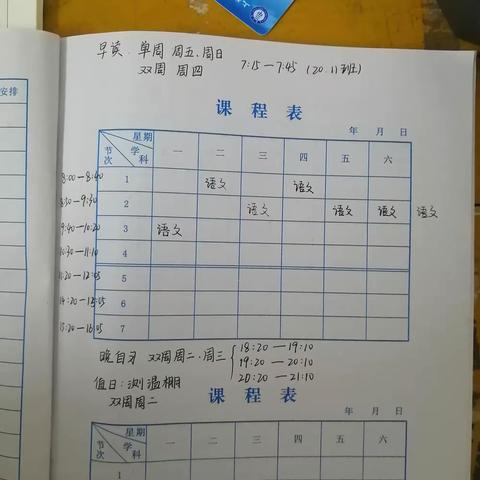 早读: 单周 周五、周日
双周 周四 7:15—7:45 (20.11班)
安排
课程表
年 月 日
星期 节次 学科 一 二 三 四 五 六
8:00—8:40 1 语文 语文
2 语文 语文 语文 语文
9:40—10:20 3 语文
10:30—11:10 4
5
6
7
晚自习 双周周二、周三 18:20—19:10
19:20—20:10
20:20—21:10
值日: 测温棚
双周周二
课程表
年 月 日
星期 节次 学科 一 二 三 四 五 六
1